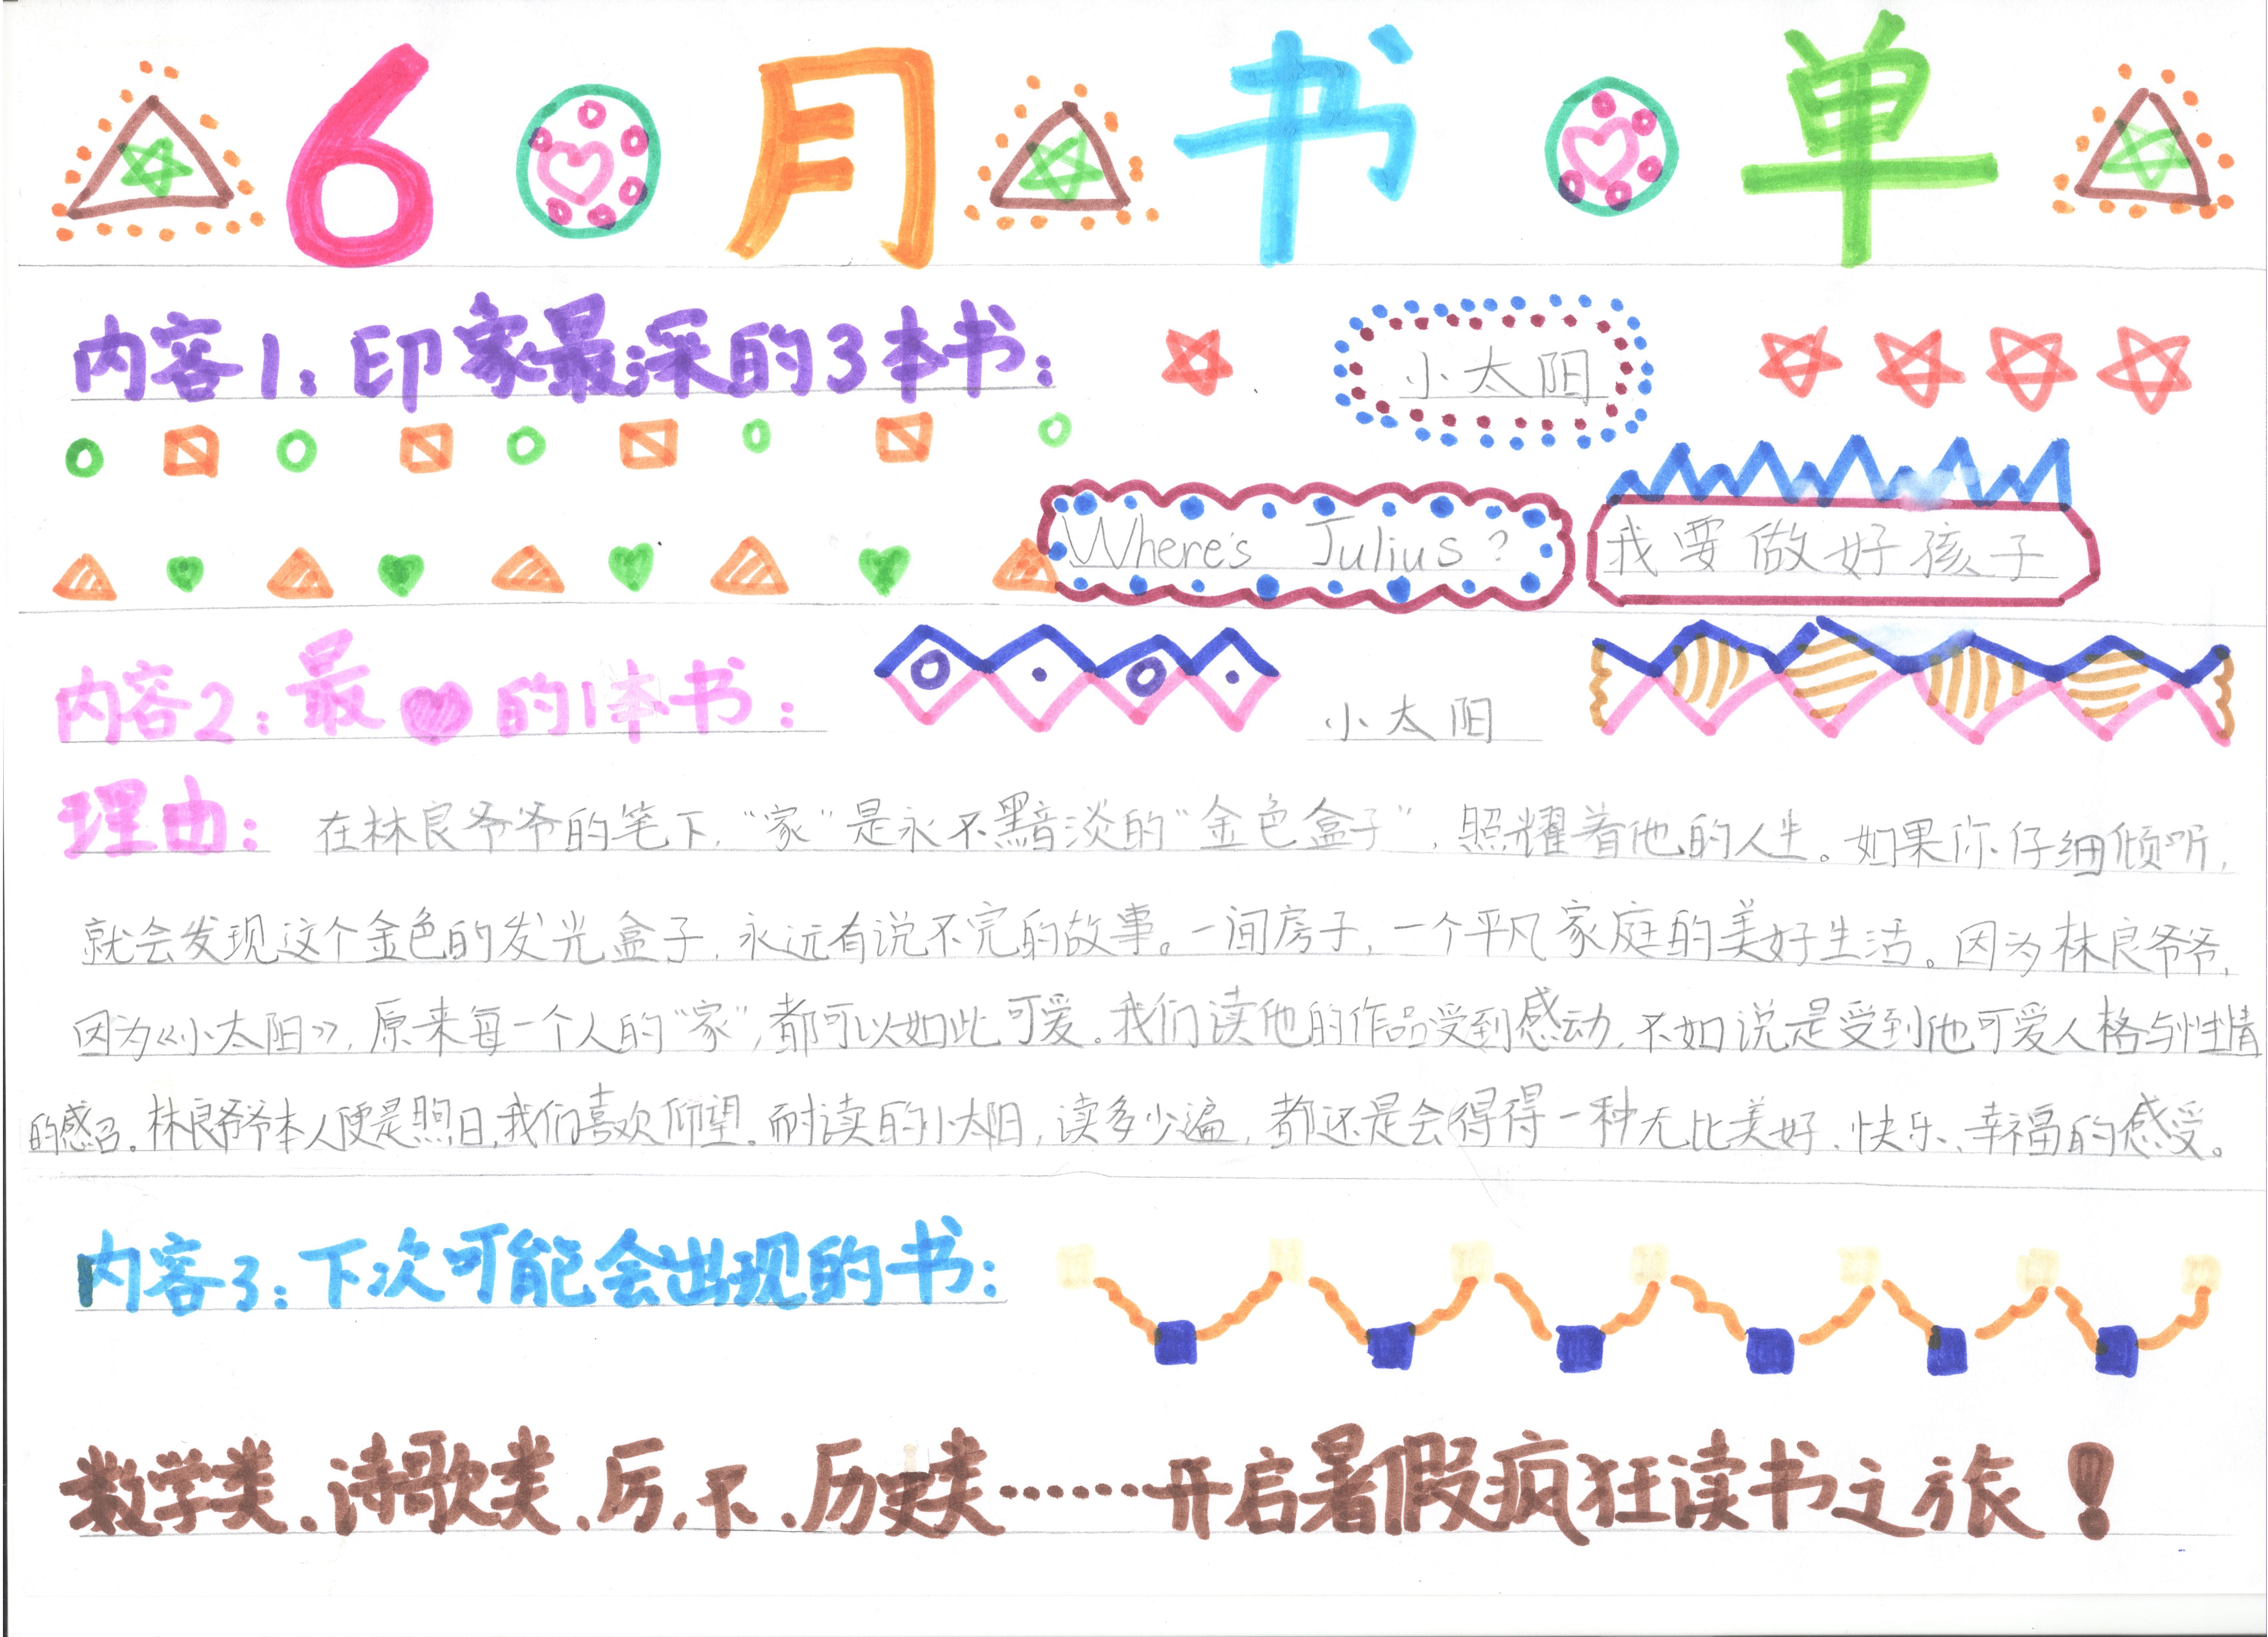 6月书单
内容1：印象最深的3本书：
小太阳
Where's Julius?
我要做好孩子
内容2：最♥的1本书：
小太阳
理由：在林良爷爷的笔下，“家”是永不黯淡的“金色盒子”，照耀着他的人生。如果你仔细倾听，
就会发现这个金色的发光盒子，永远有说不完的故事。一间房子，一个平凡家庭的美好生活。因为林良爷爷，
因为《小太阳》，原来每一个人的“家”，都可以如此可爱。我们读他的作品受到感动，不如说是受到他可爱人格与性情
的感召。林良爷爷本人便是煦日，我们喜欢仰望。耐读的小太阳，读多少遍，都还是会得得一种无比美好、快乐、幸福的感受。
内容3：下次可能会出现的书：
数学类、诗歌类、厉、不、历史类……开启暑假疯狂读书之旅！